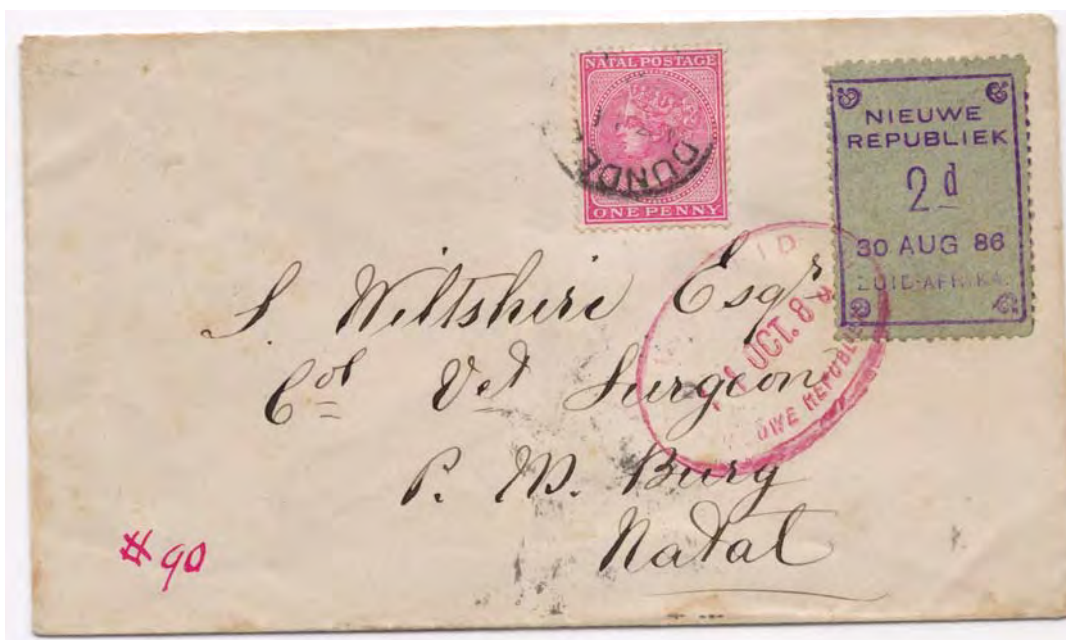 NATAL POSTAGE
ONE PENNY
NIEUWE
REPUBLIEK
2d
30 AUG 86
ZUID-AFRIKA.
OCT. 8
REPUBLIEK
S. Wiltshire Esqr
Col Vet Surgeon
P. M. Burg
Natal
#90